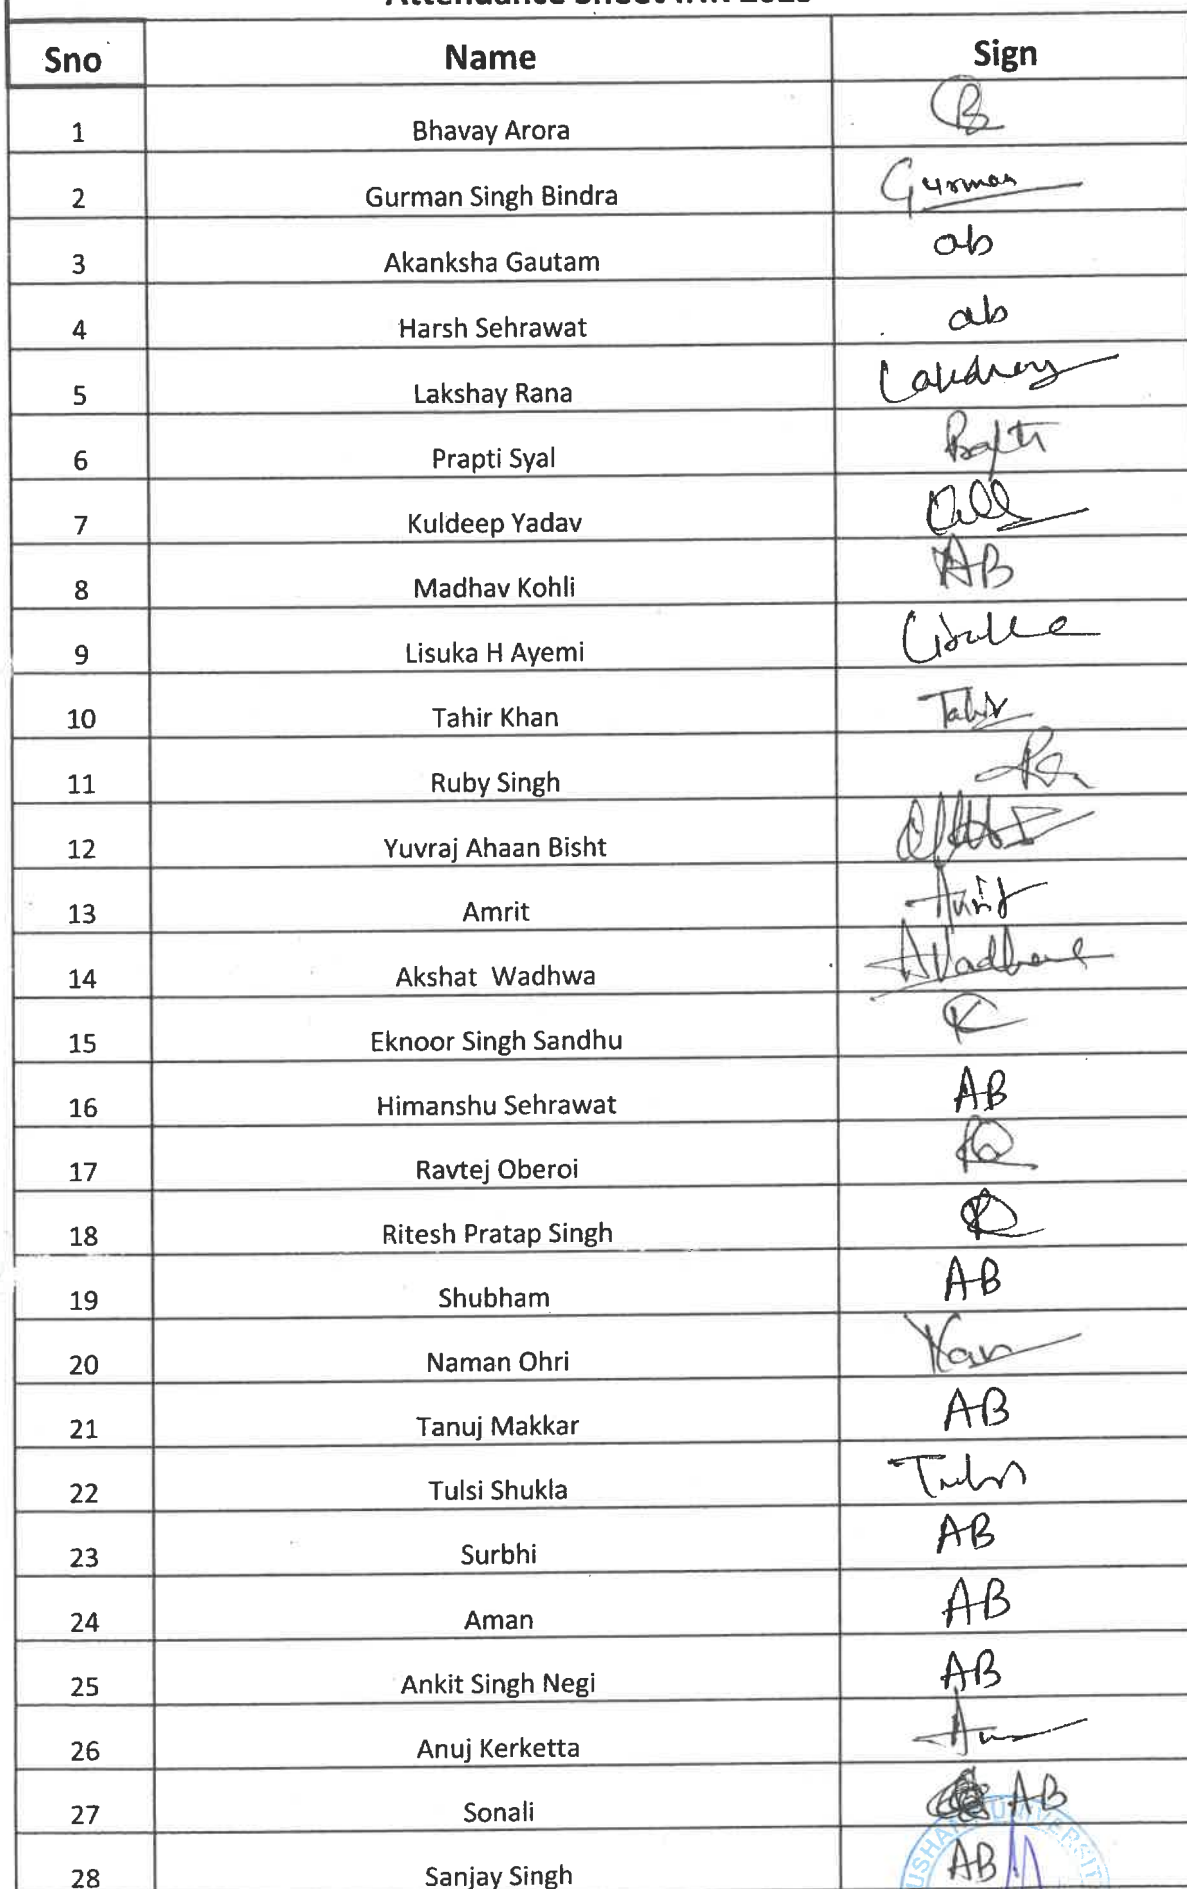 Sno Name Sign
1 Bhavay Arora
2 Gurman Singh Bindra Gurman
3 Akanksha Gautam ab
4 Harsh Sehrawat ab
5 Lakshay Rana
6 Prapti Syal
7 Kuldeep Yadav
8 Madhav Kohli AB
9 Lisuka H Ayemi
10 Tahir Khan Tahir
11 Ruby Singh
12 Yuvraj Ahaan Bisht
13 Amrit
14 Akshat Wadhwa
15 Eknoor Singh Sandhu
16 Himanshu Sehrawat AB
17 Ravtej Oberoi
18 Ritesh Pratap Singh
19 Shubham AB
20 Naman Ohri
21 Tanuj Makkar AB
22 Tulsi Shukla Tulsi
23 Surbhi AB
24 Aman AB
25 Ankit Singh Negi AB
26 Anuj Kerketta
27 Sonali AB
28 Sanjay Singh AB